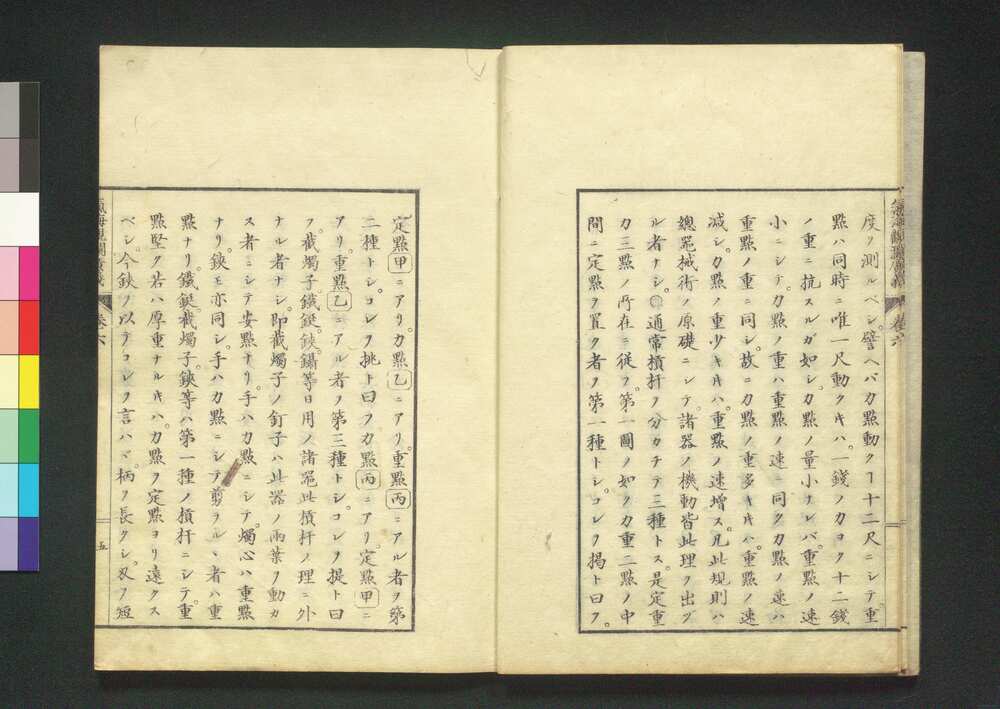 度ヲ測ルベシ。譬ヘバ力點動クヿ十二尺ニシテ重
點ハ同時ニ唯一尺動クキハ。一錢ノ力ヨク十二錢
ノ重ニ抗スルガ如シ。力點ノ量小ナレバ重點ノ速
小ニシテ。力點ノ重ハ重點ノ速ニ同ク力點ノ速ハ
重點ノ重ニ同シ。故ニ力點ノ重多キキハ。重點ノ速
減シ。力點ノ重少キキハ。重點ノ速增ス。凡此規則ハ
總噐械術ノ原礎ニシテ。諸器ノ機動皆此理ヲ出ヅ
ル者ナシ。○通常槓杆ヲ分カチテ三種トス。是定重
力三點ノ所在ニ従フ。第一圖ノ如ク力重二點ノ中
間ニ定點ヲ置ク者ヲ第一種トシ。コレヲ揭ト曰フ。
定點甲ニアリ。力點乙ニアリ。重點丙ニアル者ヲ第
二種トシ。コレヲ挑ト曰フ力點丙ニアリ。定點甲ニ
アリ。重點乙ニアル者ヲ第三種トシ。コレヲ提ト曰
フ。截燭子。鐵鋌。鋏。鑷等日用ノ諸噐此槓杆ノ理ニ外
ナル者ナシ。即截燭子ノ釘子ハ此器ノ兩葉ヲ動カ
ス者ニシテ安點ナリ。手ハ力點ニシテ。燭心ハ重點
ナリ。鋏モ亦同シ。手ハ力點ニシテ剪ラルヽ者ハ重
點ナリ。鐵鋌。截燭子。鋏等ハ第一種ノ槓杆ニシテ。重
點堅ク若ハ厚重ナルキハ。力點ヲ定點ヨリ遠クス
ベシ。今鋏ヲ以テコレヲ言ハヾ。柄ヲ長クシ。刄ヲ短
氣海觀瀾廣義
卷六
五